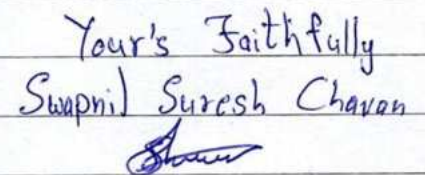 Your's Faithfully
Swapnil Suresh Chavan